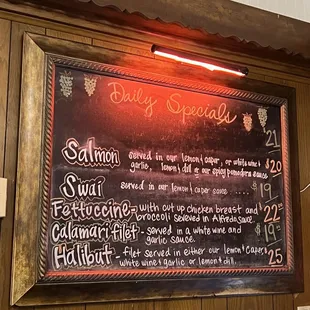 Daily Specials
21
Salmon served in our lemon & caper, or, white wine & $20
garlic, lemon & dill or our spicy pomodora sauce
Swai served in our lemon & caper sauce ..... $19
Fettuccine- with cut up chicken breast and 22
broccoli served in Alfredo sauce.
Calamari filet - served in a white wine and $19
garlic sauce.
Halibut - filet served in either our lemon & caper, 25
white wine & garlic or lemon & dill.